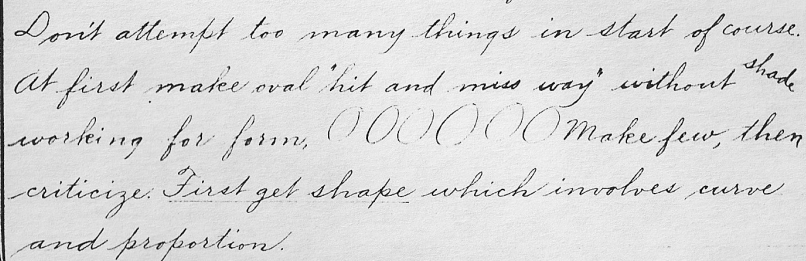 Don't attempt too many things in start of course.
At first make oval "hit and miss way" without shade
working for form, OOOOOO Make few, then
criticize. First get shape which involves curve
and proportion.